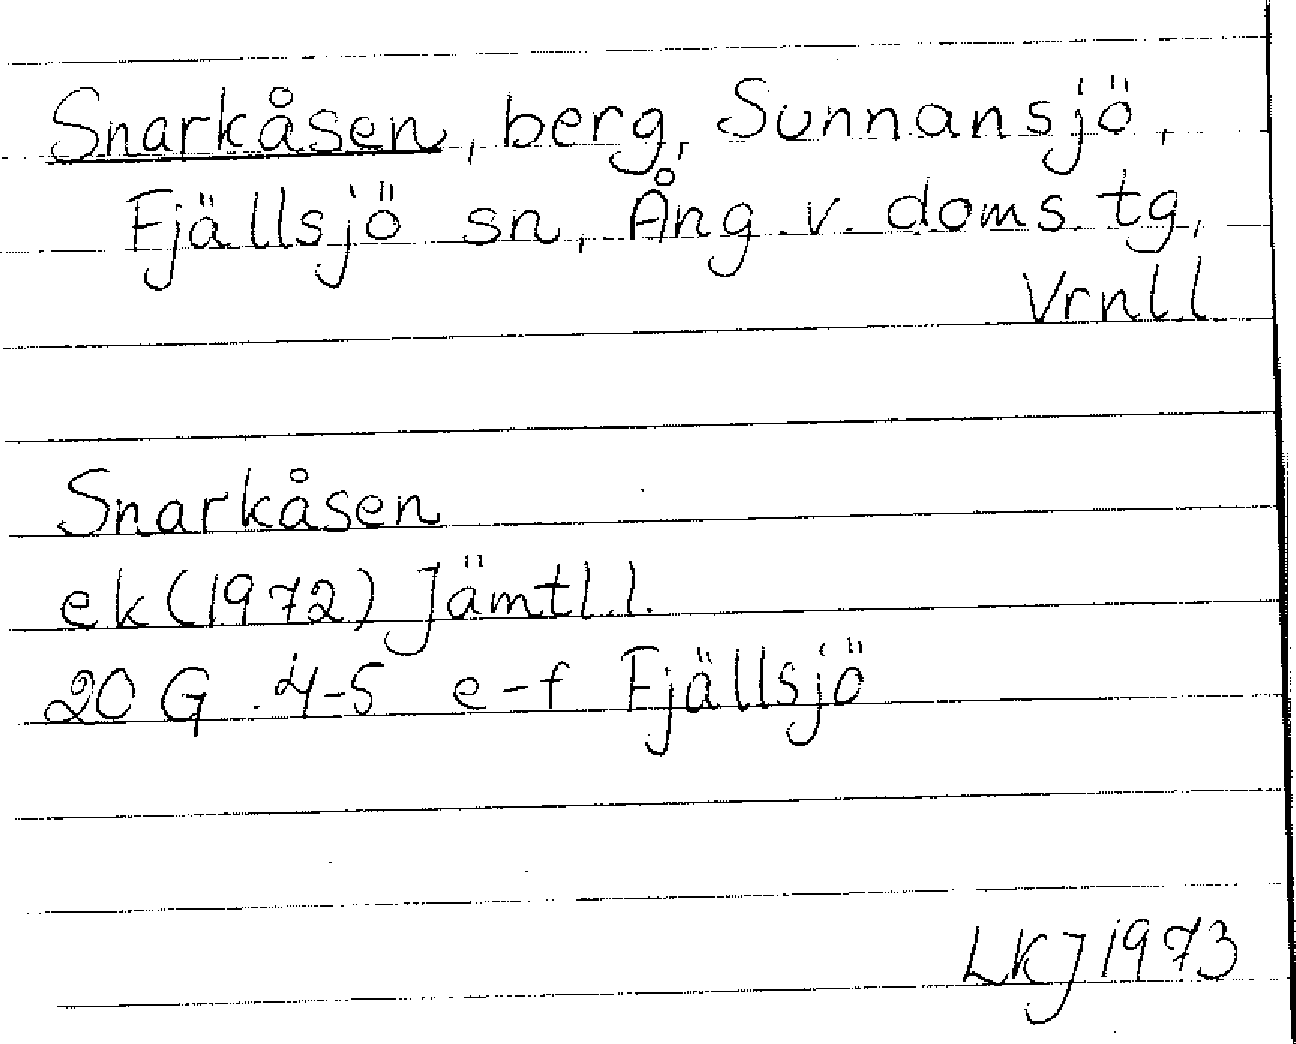 Snarkåsen, berg, Sunnansjö,
Fjällsjö sn, Ång. v. doms. tg,
Vrnll
Snarkåsen
ek (1972) Jämtl. l.
20 G .4-5 e-f Fjällsjö
LKJ 1973